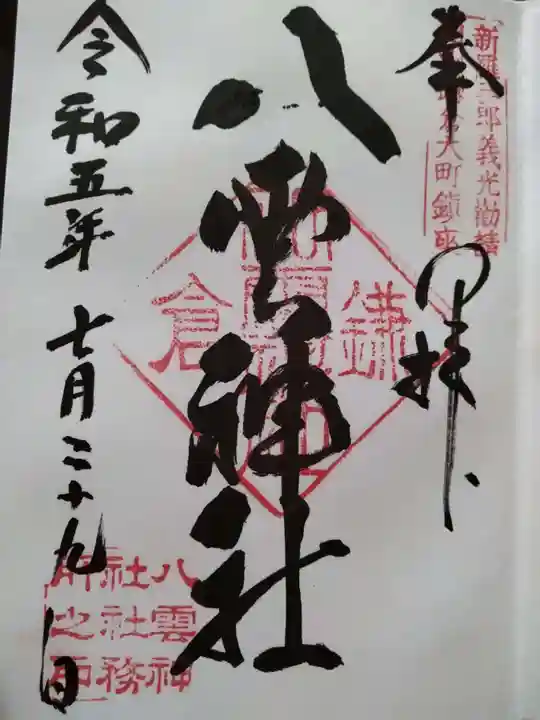 新羅三郎義光勧請
鎌倉大町鎮座
奉拝
八雲神社
鎌倉
令和五年七月二十九日
八雲神
社社務
所之印